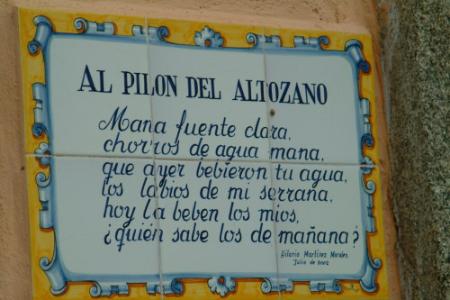 AL PILON DEL ALTOZANO
Mana fuente clara,
chorros de agua mana,
que ayer bebieron tu agua,
los labios de mi serrana,
hoy la beben los mios,
¿quién sabe los de mañana?
Hilario Martínez Morales
Julio de 2002